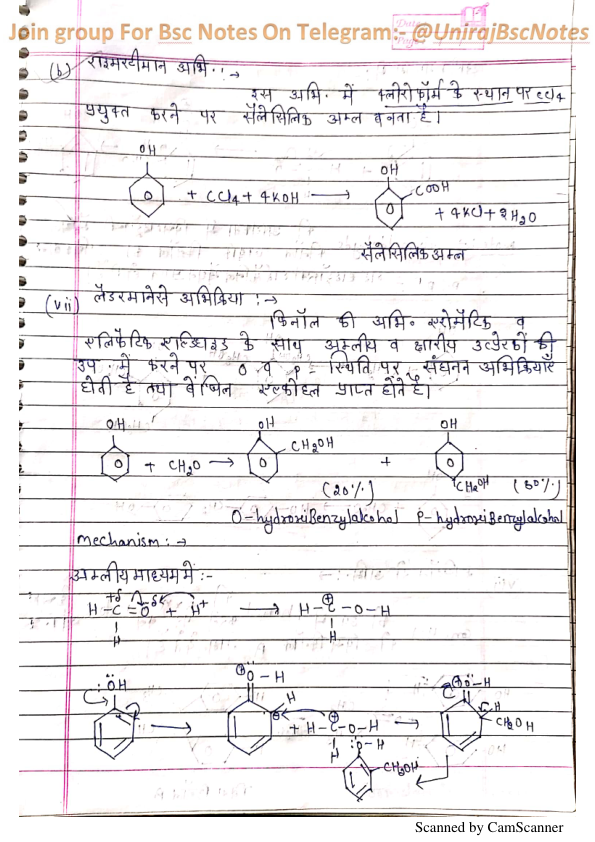 Join group For Bsc Notes On Telegram:- @UnirajBscNotes
(b) राइमरटीमान अभि. :→
इस अभि. में क्लोरोफॉर्म के स्थान पर CCl4
प्रयुक्त करने पर सैलेसिलिक अम्ल बनता है।
OH
OH
COOH
+ CCl4 + 4KOH ⟶
+ 4KCl + 2H2O
सैलेसिलिक अम्ल
(vii) लैडरमानेसे अभिक्रिया :→
फिनॉल की अभि. एरोमैटिक व
एलिफैटिक एल्डिहाइड के साथ अम्लीय व क्षारीय उत्प्रेरकों की
उप. में करने पर o व p - स्थिति पर संघनन अभिक्रियाएँ
होती है तथा बेन्जिल एल्कोहल प्राप्त होते है।
OH OH OH
CH2OH
+ CH2O → +
CH2OH
(20%)
O-hydroxiBenzylalcohol P-hydroxiBenzylalcohol
mechanism :→
अम्लीय माध्यम में :-
+δ -δ
H-C=O + H+ ⟶ H-C⊕-O-H
H H
ÖH
⊕Ö-H
H
⊕Ö-H
H
CH2OH
⟶ + H-C⊕-O-H ⟶
H
Ö-H
CH2OH
Scanned by CamScanner